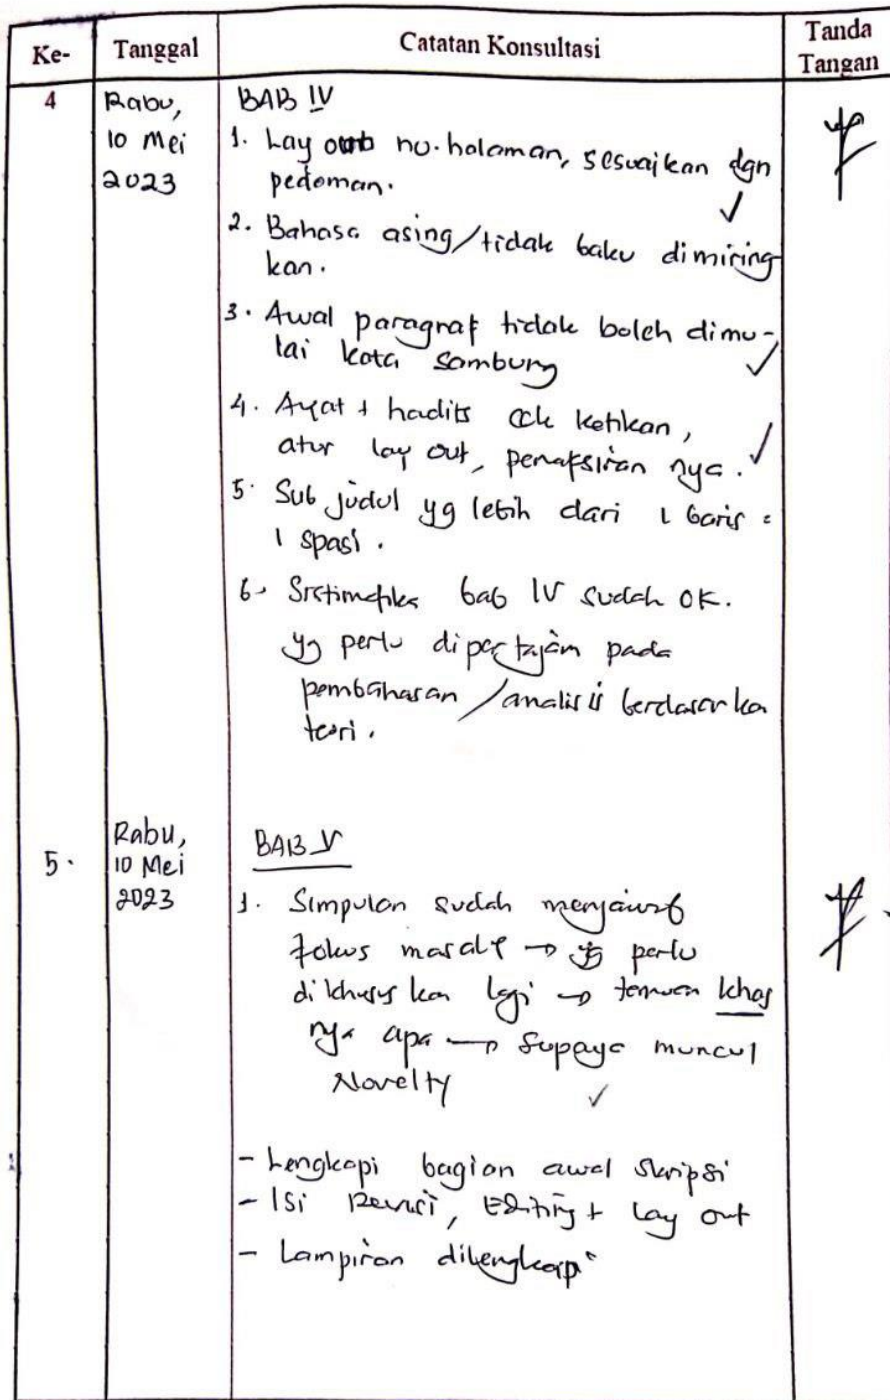 Ke- Tanggal Catatan Konsultasi Tanda Tangan
4 Rabu, 10 Mei 2023
BAB IV
1. Lay out no. halaman, sesuaikan dgn
pedoman.
2. Bahasa asing/tidak baku dimiring
kan.
3. Awal paragraf tidak boleh dimu-
lai kata sambung
4. Ayat + hadits cek ketikan,
atur lay out, penafsiran nya.
5. Sub judul yg lebih dari 1 baris =
1 spasi.
6. Sistimatika bab IV sudah OK.
yg perlu dipertajam pada
pembahasan/analisis berdasarkan
teori.
5. Rabu, 10 Mei 2023
BAB V
1. Simpulan sudah menjawab
fokus masalah → yg perlu
dikhususkan lagi → temuan khas
nya apa → supaya muncul
Novelty
- Lengkapi bagian awal skripsi
- Isi Revisi, Editing + lay out
- Lampiran dilengkapi